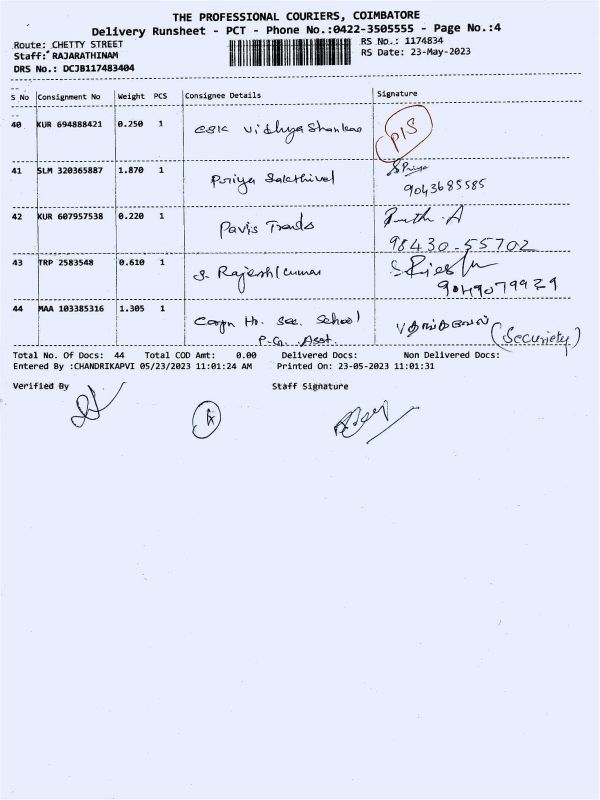 THE PROFESSIONAL COURIERS, COIMBATORE
Delivery Runsheet - PCT - Phone No.:0422-3505555 - Page No.:4
Route: CHETTY STREET RS No.: 1174834
Staff: RAJARATHINAM RS Date: 23-May-2023
DRS No.: DCJB117483404
S No Consignment No Weight PCS Consignee Details Signature
40 KUR 694888421 0.250 1 Vidhya Shankar P/S
41 SLM 320365887 1.870 1 Priya Sakthivel S Priya
9043685585
42 KUR 607957538 0.220 1 Pavis Trends
98430-55702
43 TRP 2583548 0.610 1 S. Rajesh Kumar
9049079929
44 MAA 103385316 1.305 1 Corpn Hr. Sec. School (Securiety)
P.G. Asst.
Total No. Of Docs: 44 Total COD Amt: 0.00 Delivered Docs: Non Delivered Docs:
Entered By :CHANDRIKAPVI 05/23/2023 11:01:24 AM Printed On: 23-05-2023 11:01:31
Verified By Staff Signature
A